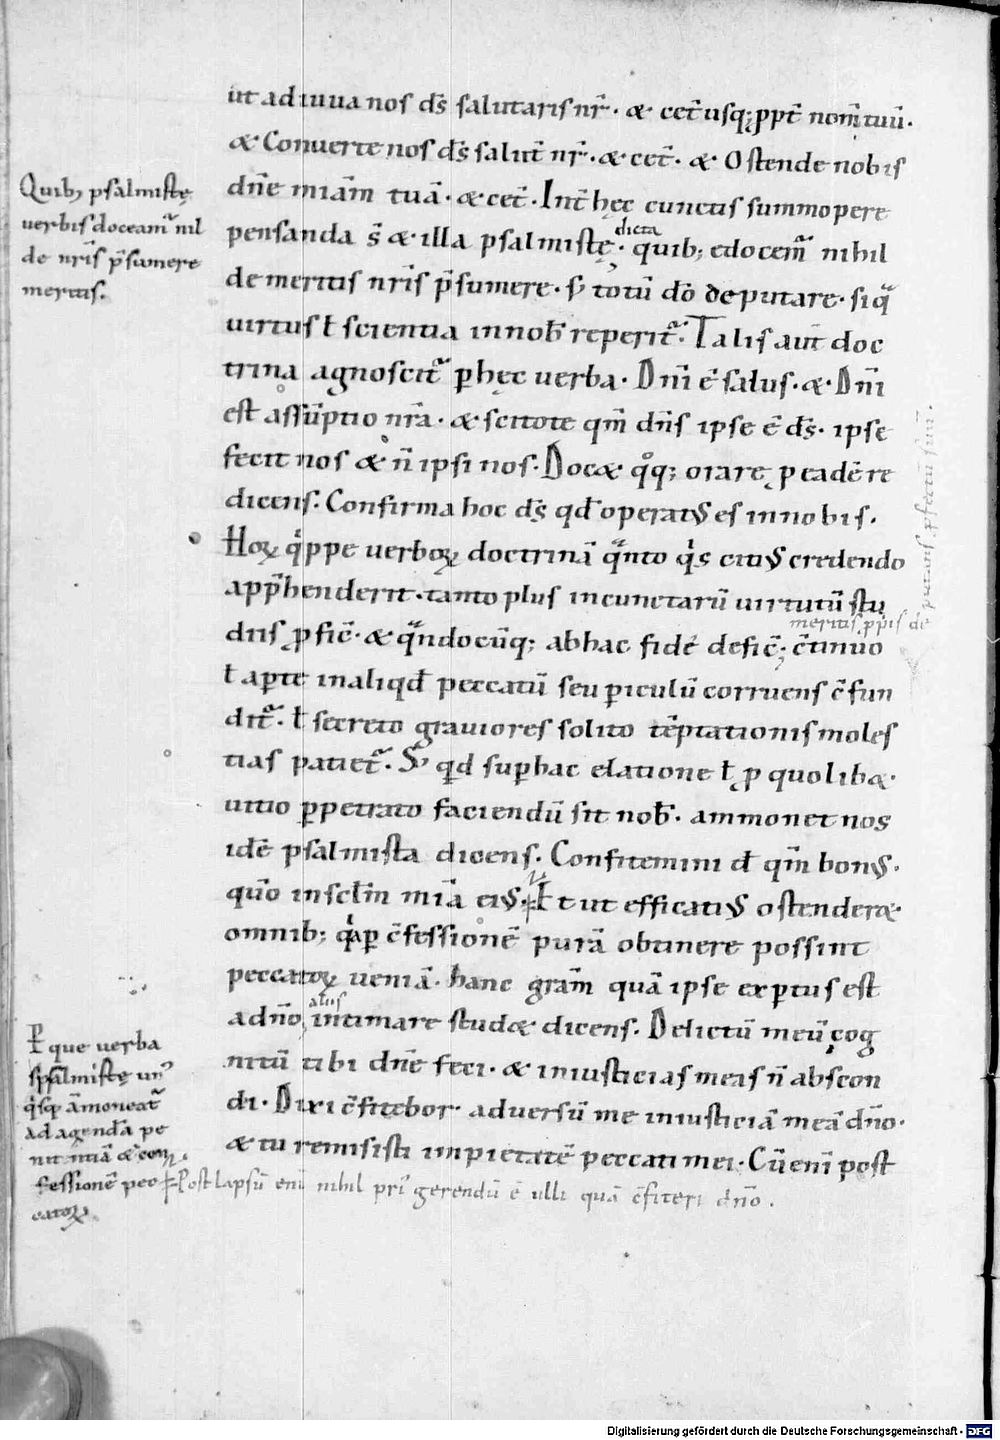 ut adiuua nos ds̄ salutaris nr̄. & cet̄ usq; ꝓpt̄ nom̄ tuū.
& Conuerte nos ds̄ salut̄ nr̄. & cet̄. & Ostende nobis
dn̄e miām tuā. & cet̄. Int̄ hęc cunctis summopere
pensanda s̄ & illa psalmistę dicta. quib; edocem̄ nihil
de meritis nr̄is p̄sumere. s; totū do̅ deputare. siq̄
virtus ł scientia in nob̄ reperit̄. Talis aut̄ doc
trina agnoscit̄ ꝑ hęc uerba. Dn̄i ē salus. & Dn̄i
est assūptio nr̄a. & scitote qm̄ dn̄s ipse ē ds̄. ipse
fecit nos & n̄ ipsi nos. Doc& qͦq; orare ꝓ eadē re
dicens. Confirma hoc ds̄ qd̄ operatꝰ es in nobis.
Hoꝝ qͥppe uerboꝝ doctrinā qͣnto qͥs citiꝰ credendo
app̄henderit. tanto plus in cunctarū uirtutū stu
diis ꝓfic̄. & qͣndocūq; ab hac fidē defic̄; meritis ꝓp̄is deputans ꝓfectū suū. c̄tinuo
ł aꝑte in aliqd̄ peccatū seu ꝑiculū corruens c̄fun
dit̄. ł secreto grauiores solito tēptationis moles
tias patiet̄. S; qͥd suꝑ hac elatione ł ꝓ quolib&
uitio ꝑpetrato faciendū sit nob̄. ammonet nos
idē psalmista dicens. Confitemini d̄ qm̄ bonꝰ.
quo̅ in sclm̄ mīa eiꝰ. Et ut efficatiꝰ ostender&
omnib; qͥa ꝑ c̄fessionē purā obtinere possint
peccatoꝝ ueniā. hanc grām quā ipse exꝑtus est
a dn̄o, aliis intimare stud& dicens. Delictū meū cog
nitū tibi dn̄e feci. & iniusticias meas n̄ abscon
di. Dixi c̄fitebor aduersū me iniusticiā meā dn̄o.
& tu remisisti impietatē peccati mei. Cū eni̅ post
Post lapsū eni̅ nihil pri᷒ gerendū ē ulli quā c̄fiteri dn̄o.
Quib; psalmistę
uerbis doceam̄ nil
de nr̄is p̄sumere
meritis.
Ꝑ que uerba
psalmistę un᷒
qͥsq̨ āmoneat̄
ad agenda pe
nitentiā & con
fessionē pec
catoꝝ